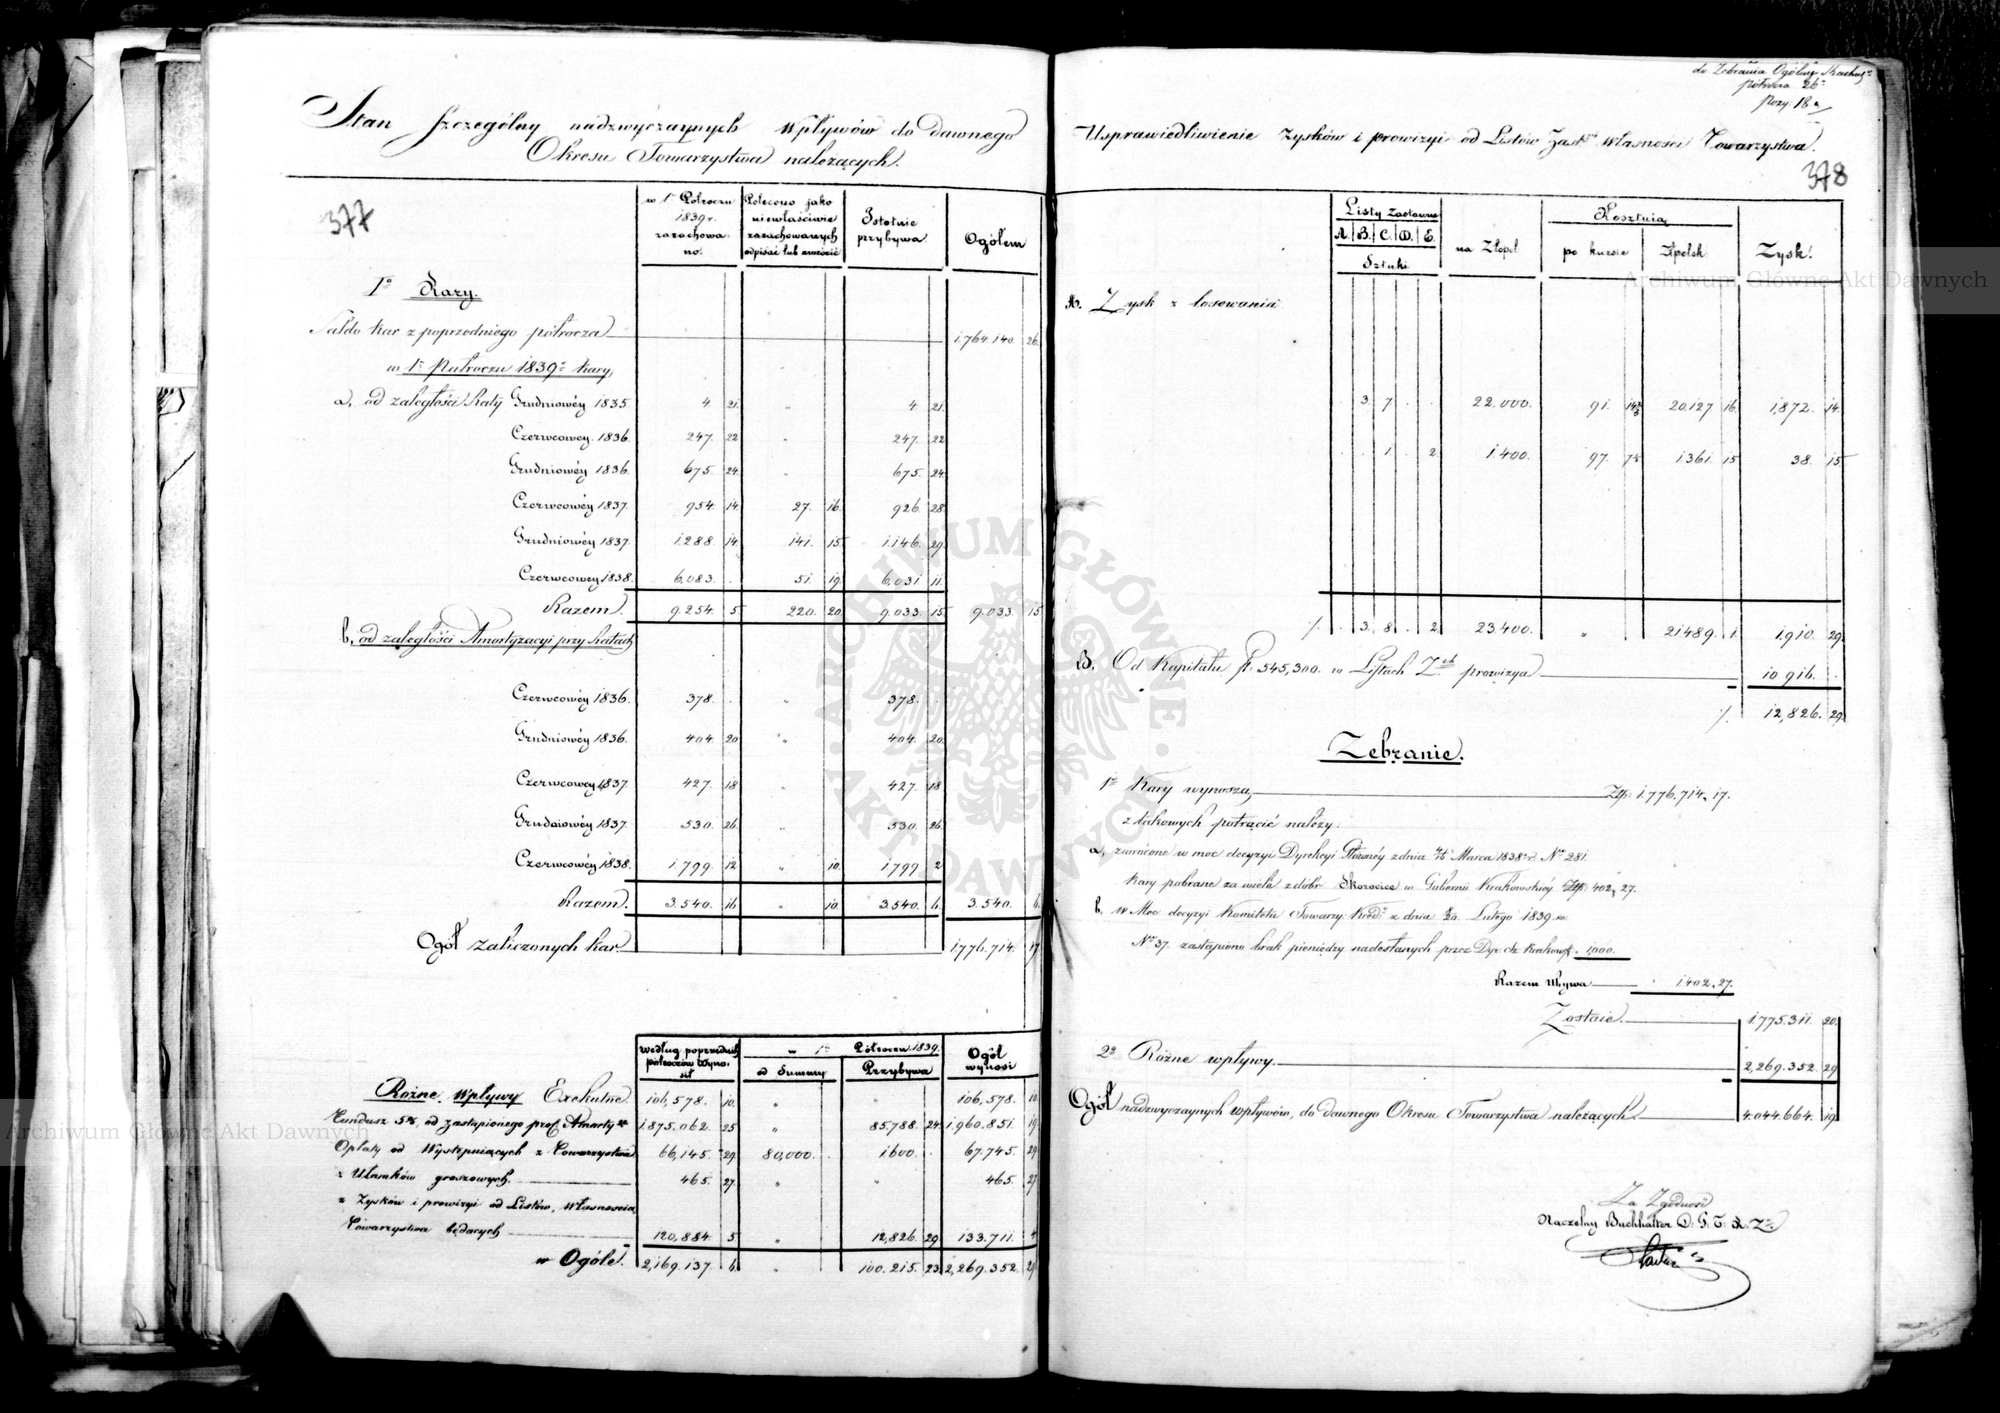 Stan szczególny nadzwyczaynych Wpływów do dawnego
Okresu Towarzystwa należących.
377
w 1m Półroczu 1839 r. zarachowano. | Polecono jako niewłaściwie zarachowanych odpisać lub zwrócić | Istotnie przybywa | Ogółem
1o Kary.
Saldo kar z poprzedniego półrocza 1.764.140. 26.
w 1m Półroczu 1839r kary,
a, od zaległości Raty Grudniowéy 1835 4. 21. „ 4. 21.
Czerwcowey 1836. 247. 22 „ 247. 22
Grudniowéy 1836. 675. 24. „ 675. 24.
Czerwcowéy 1837. 954. 14. 27. 16. 926. 28.
Grudniowéy 1837. 1.288. 14 141. 15. 1.146. 29.
Czerwcowey 1838. 6.083. . 51. 19. 6.031. 11.
Razem. 9.254. 5. 220. 20. 9.033. 15 9.033. 15
b, od zaległości Amortyzacyi przy Ratach
Czerwcowéy 1836. 378. . „ 378. .
Grudniowéy 1836. 404. 20 „ 404. 20.
Czerwcowey 1837. 427. 18 „ 427. 18
Grudniowéy 1837. 530. 26. „ 530. 26.
Czerwcowéy 1838. 1.799. 12 „ 10. 1.799. 2
Razem. 3.540. 16. „ 10. 3.540. 6. 3.540. 6.
Ogół zaliczonych kar 1.776.714. 17.
Według poprzednich półroczów wynosił | w 1m Półroczu 1839. | od Summy | Przybywa | Ogół wynosi
Rózne Wpływy Exekutne 106,578. 10. „ „ 106,578. 10
Fundusz 5%, od zastąpionego prof. Amorty 1.875.062. 25 „ 85.788. 24. 1.960.851. 19.
Opłaty od Występuiących z Towarzystwa 66,145. 29 80,000. . 1.600. . 67.745. 29
z Ułamków groszowych. 465. 27. „ „ 465. 27
z Zysków i prowizyi od Listów, własnością
Towarzystwa będących 120,884. 5 „ 12,826. 29. 133.711. 4
w Ogóle. 2,169.137. 6. „ 100.215. 23 2,269.352. 29
do Zebrania Ogólny
półrocza 26o
Pozy. 18
Usprawiedliwienie zysków i prowizyi od Listów Zastch własności Towarzystwa.
378
Listy Zastawne | Kosztuią
A. B. C. D. E. | na Złopol | po kursie | Złpolsk | Zysk.
Sztuki
A. Zysk z losowania
. 3. 7 . . 22.000. 91. 20.127. 16. 1,872. 14.
. . 1 . 2 1.400. 97. 1.361. 15 38. 15
. 3. 8 . 2 23.400. „ 21.489. 1. 1,910. 29
B, Od Kapitału fl. 545,300. w Listach Zch prowizya 10.916. .
12,826. 29
Zebranie.
1o Kary wynoszą Złp. 1.776.714, 17.
z takowych potrącić należy.
a, zwrócone w moc decyzyi Dyrekcyi Główney z dnia Marca 1838r. No 281.
kary pobrane za wiele z dóbr Skorocice w Gubernii Krakowskiéy Złp. 402, 27.
b, w Moc decyzyi Komitetu Towarzy. Kred. z dnia Lutego 1839. r.
No 37. zastąpiono brak pieniędzy nadesłanych przez Dyr. Krakows. 1,000.
Razem Ubywa 1.402, 27.
Zostaie. 1.775.311. 20.
2o Rózne wpływy. 2,269.352. 29
Ogół nadzwyczaynych wpływów, do dawnego Okresu Towarzystwa należących 4.044.664. 19.
Za Zgodność
Naczelny Buchhalter D. G. T. K. Z.
ARCHIWUM GŁÓWNE AKT DAWNYCH
Archiwum Główne Akt Dawnych
Archiwum Główne Akt Dawnych